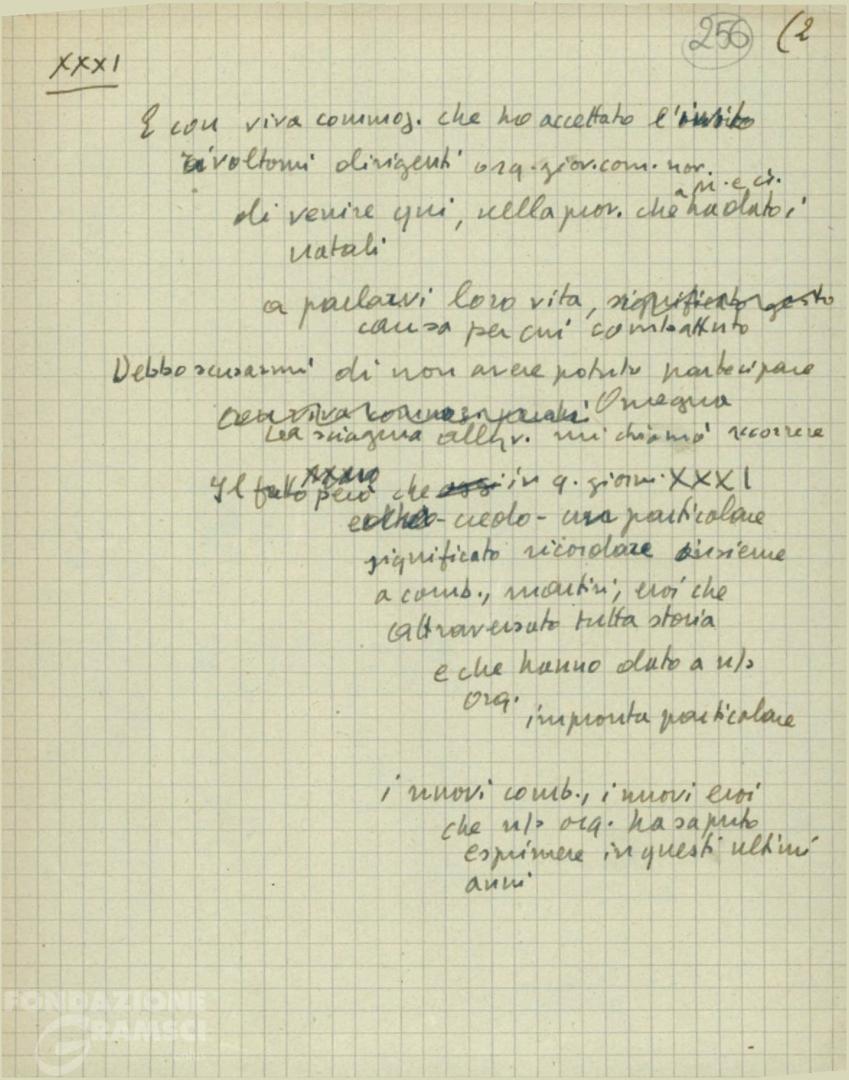 256 (2
XXXI
È con viva commoz. che ho accettato l'invito
rivoltomi dirigenti org. giov. com. nov.
a M. e ci.
di venire qui, nella prov. che ha dato i
natali
a parlarvi loro vita, significato gesto
causa per cui combattuto
Debbo scusarmi di non avere potuto partecipare
con viva Omegna
La sciagura alluv. mi chiamò accorrere
XXXI
Il fatto però che oggi in q. giorni XXXI
credo - una particolare
significato ricordare insieme
a comb., martiri, eroi che
attraversato tutta storia
e che hanno dato a n/s
org.
impronta particolare
i nuovi comb., i nuovi eroi
che n/s org. ha saputo
esprimere in questi ultimi
anni
FONDAZIONE
GRAMSCI